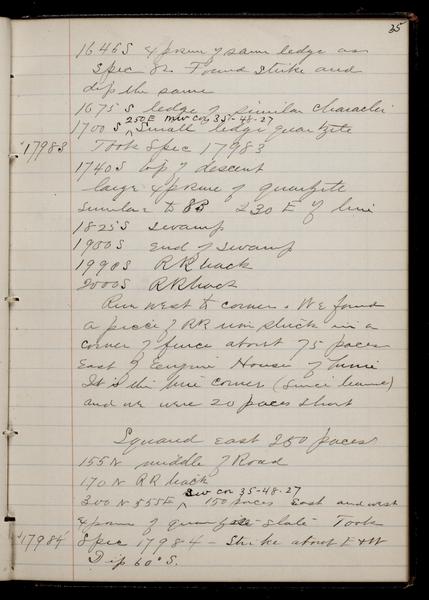 35
1646 S Exposure of same ledge as
Spec 82. Found strike and
dip the same
1675 S ledge of similar character
250 E NW cor 35-48-27
1700 S ^ Small ledge quartzite
17983 Took Spec 17983
1740 S top of descent
large exposure of quartzite
similar to 83 230 E of line
1825 S swamp
1900 S end of swamp
1990 S RR track
2000 S RR track
Run west to corner. We found
a piece of RR iron stuck in a
corner of fence about 75 paces
East of Engine House of mine
It is the true corner (since learned)
and we were 20 paces short
Squared east 250 paces
155 N middle of Road
170 N RR track
SW cor 35-48-27
300 N 555 E ^ 150 paces East and west
exposure of quartzite slate Took
17984 Spec 17984 - Strike about E + W
Dip 60° S.